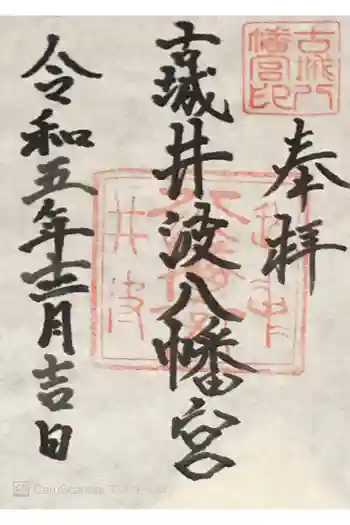 奉拝
古城井波八幡宮
令和五年十二月吉日
古城八
幡宮印
CamScanner